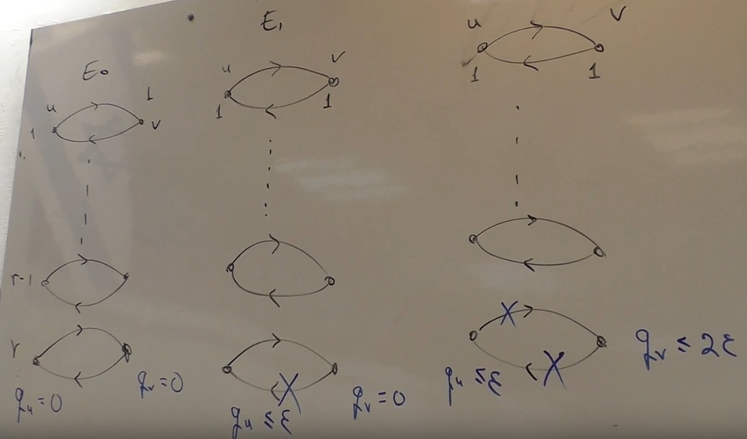 E₀
u 1
1 v
r-1
r
q_u=0 q_v=0
E₁
u v
1 1
X
q_u ≤ ε q_v=0
u v
1 1
X
X
q_u ≤ ε q_v ≤ 2ε